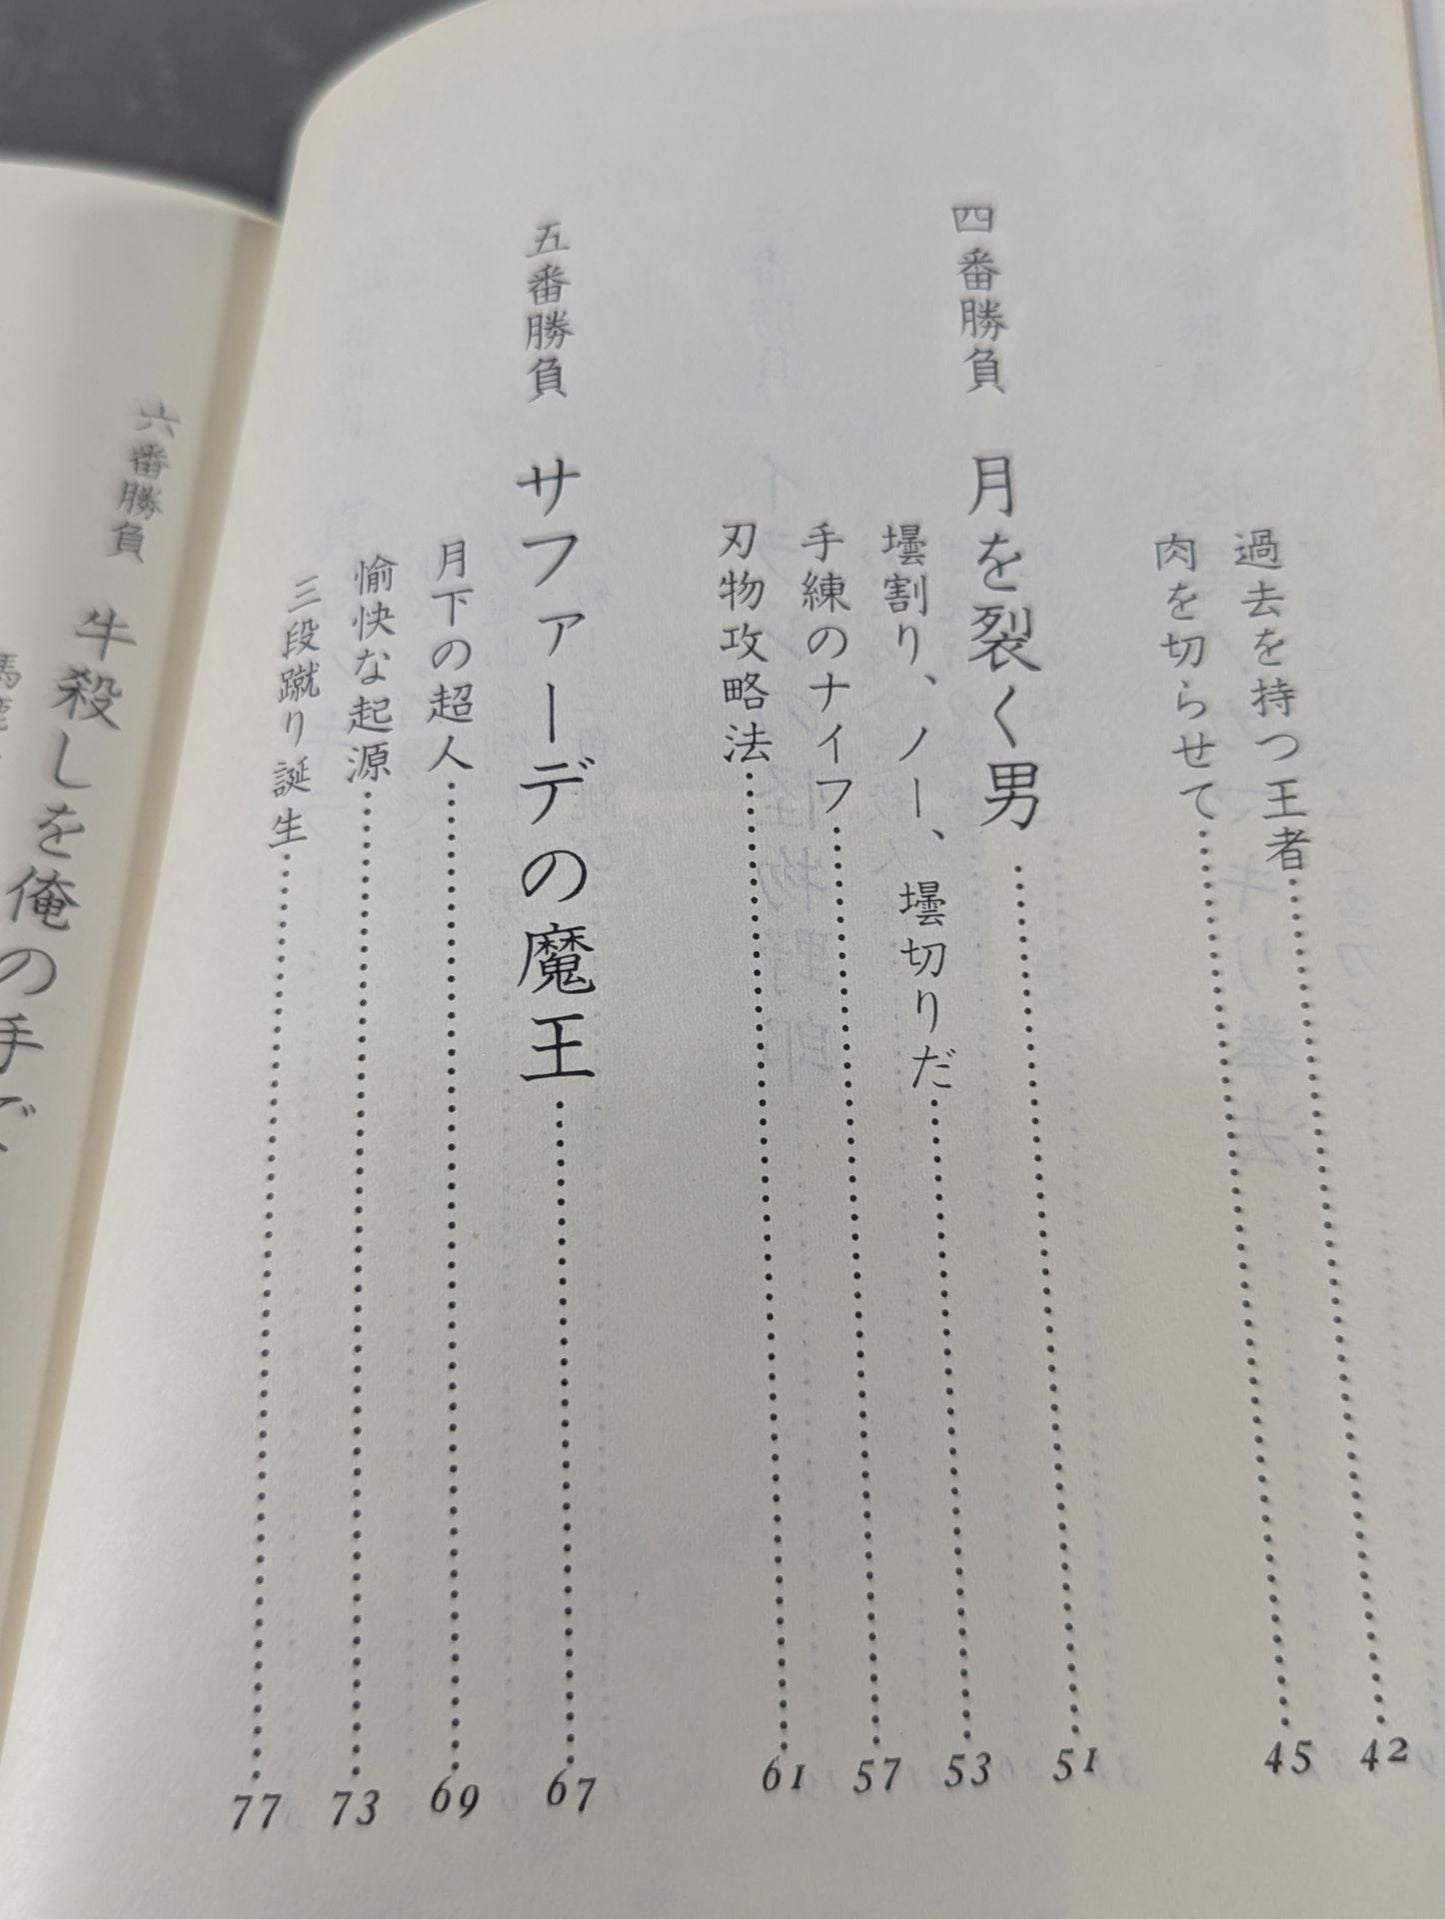 過去を持つ王者……42
肉を切らせて……45
四番勝負 月を裂く男……51
壜割り、ノー、壜切りだ……53
手練のナイフ……57
刃物攻略法……61
五番勝負 サファーデの魔王……67
月下の超人……69
愉快な起源……73
三段蹴り誕生……77
六番勝負 牛殺しを俺の手で
馬鹿